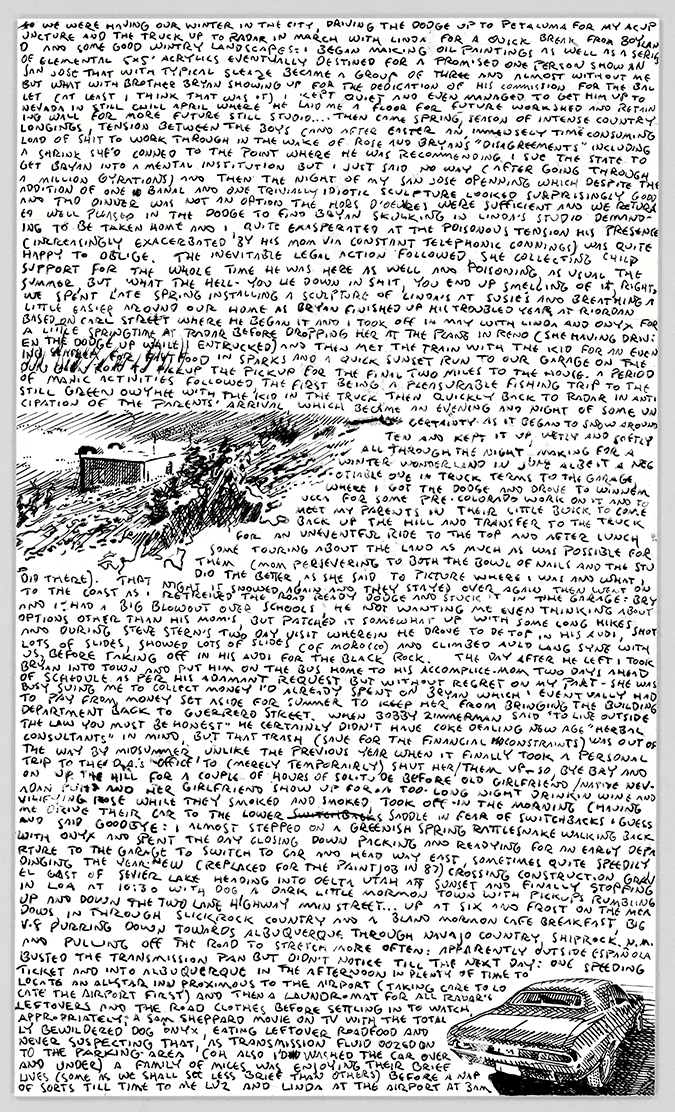 SO WE WERE HAVING OUR WINTER IN THE CITY, DRIVING THE DODGE UP TO PETALUMA FOR MY ACUP
UNCTURE AND THE TRUCK UP TO RADAR IN MARCH WITH LINDA FOR A QUICK BREAK FROM BRYAN
D AND SOME GOOD WINTRY LANDSCAPES: I BEGAN MAKING OIL PAINTINGS AS WELL AS A SERIES
OF ELEMENTAL 5X5' ACRYLICS EVENTUALLY DESTINED FOR A PROMISED ONE PERSON SHOW AN
SAN JOSE THAT WITH TYPICAL SLEAZE BECAME A GROUP OF THREE AND ALMOST WITHOUT ME
BUT WHAT WITH BROTHER BRYAN SHOWING UP FOR THE DEDICATION OF HIS COMMISSION FOR THE BAL
LET (AT LEAST I THINK THAT WAS IT) I KEPT QUIET AND EVEN MANAGED TO GET HIM UP TO
NEVADA IN STILL CHILL APRIL WHERE HE LAID ME A FLOOR FOR FUTURE WORKSHED AND RETAIN
ING WALL FOR MORE FUTURE STILL STUDIO... THEN CAME SPRING, SEASON OF INTENSE COUNTRY
LONGINGS, TENSION BETWEEN THE BOYS (AND AFTER EASTER AN IMMENSELY TIME CONSUMING
LOAD OF SHIT TO WORK THROUGH IN THE WAKE OF ROSE AND BRYAN'S "DISAGREEMENTS" INCLUDING
A SHRINK SHE'D CONED TO THE POINT WHERE HE WAS RECOMMENDING I SUE THE STATE TO
GET BRYAN INTO A MENTAL INSTITUTION BUT I JUST SAID NO WAY (AFTER GOING THROUGH
A MILLION GYRATIONS) AND THEN THE NIGHT OF MY SAN JOSE OPENNING WHICH DESPITE THE
ADDITION OF ONE BANAL AND ONE TRIVIALLY IDIOTIC SCULPTURE LOOKED SURPRISINGLY GOOD
AND THO DINNER WAS NOT AN OPTION THE HORS D'OEUVRES WERE SUFFICIENT AND WE RETURN
ED WELL PLEASED IN THE DODGE TO FIND BRYAN SKULKING IN LINDA'S STUDIO DEMAND-
ING TO BE TAKEN HOME AND I, QUITE EXASPERATED AT THE POISONOUS TENSION HIS PRESENCE
(INCREASINGLY EXACERBATED BY HIS MOM VIA CONSTANT TELEPHONIC CONNINGS) WAS QUITE
HAPPY TO OBLIGE. THE INEVITABLE LEGAL ACTION FOLLOWED, SHE COLLECTING CHILD
SUPPORT FOR THE WHOLE TIME HE WAS HERE AS WELL AND POISONING, AS USUAL THE
SUMMER, BUT WHAT THE HELL- YOU LIE DOWN IN SHIT, YOU END UP SMELLING OF IT, RIGHT?
WE SPENT LATE SPRING INSTALLING A SCULPTURE OF LINDA'S AT SUSIE'S AND BREATHING A
LITTLE EASIER AROUND OUR HOME AS BRYAN FINISHED UP HIS TROUBLED YEAR AT RIORDAN
BASED ON CARL STREET WHERE HE BEGAN IT AND I TOOK OFF IN MAY WITH LINDA AND ONYX FOR
A LITTLE SPRINGTIME AT RADAR BEFORE DROPPING HER AT THE PLANE IN RENO (SHE HAVING DRIV-
EN THE DODGE UP WHILE I ENTRUCKED) AND THEN MET THE TRAIN WITH THE KID FOR AN EVEN
ING FOOD IN SPARKS AND A QUICK SUNSET RUN TO OUR GARAGE ON THE
PICKUP THE PICKUP FOR THE FINAL TWO MILES TO THE HOUSE. A PERIOD
OF MANIC ACTIVITIES FOLLOWED, THE FIRST BEING A PLEASURABLE FISHING TRIP TO THE
STILL GREEN OWYHEE WITH THE KID IN THE TRUCK THEN QUICKLY BACK TO RADAR IN ANTI
CIPATION OF THE PARENTS' ARRIVAL WHICH BECAME AN EVENING AND NIGHT OF SOME UN
CERTAINTY AS IT BEGAN TO SNOW AROUND
TEN AND KEPT IT UP, WETLY AND SOFTLY
ALL THROUGH THE NIGHT, MAKING FOR A
WINTER WONDERLAND IN JUNE ALBEIT A NEG
OTIABLE ONE IN TRUCK TERMS TO THE GARAGE,
WHERE I GOT THE DODGE AND DROVE TO WINNEM
UCCA FOR SOME PRE-COLORADO WORK ON IT AND TO
MEET MY PARENTS IN THEIR LITTLE BUICK TO COME
BACK UP THE HILL AND TRANSFER TO THE TRUCK
FOR AN UNEVENTFUL RIDE TO THE TOP AND AFTER LUNCH
SOME TOURING ABOUT THE LAND AS MUCH AS WAS POSSIBLE FOR
THEM (MOM PERSEVERING TO BOTH THE BOWL OF NAILS AND THE STU
DIO THE BETTER, AS SHE SAID TO PICTURE WHERE I WAS AND WHAT I
DID THERE). THAT NIGHT IT SNOWED AGAIN AND THEY STAYED OVER AGAIN THEN WENT ON
TO THE COAST AS I RETRIEVED THE ROAD READY DODGE AND STUCK IT IN THE GARAGE: BRY
AND I HAD A BIG BLOWOUT OVER SCHOOLS, HE NOT WANTING ME EVEN THINKING ABOUT
OPTIONS OTHER THAN HIS MOM'S, BUT PATCHED IT SOMEWHAT UP WITH SOME LONG HIKES, SHOT
AND DURING STEVE STERN'S TWO DAY VISIT WHEREIN HE DROVE TO DE TOP IN HIS AUDI,
LOTS OF SLIDES, SHOWED LOTS OF SLIDES (OF MOROCCO) AND CLIMBED AULD LANG SYNE WITH
US, BEFORE TAKING OFF IN HIS AUDI FOR THE BLACK ROCK. THE DAY AFTER HE LEFT I TOOK
BRYAN INTO TOWN AND PUT HIM ON THE BUS HOME TO HIS ACCOMPLICE-MOM TWO DAYS AHEAD
OF SCHEDULE AS PER HIS ADAMANT REQUEST BUT WITHOUT REGRET ON MY PART - SHE WAS
BUSY SUING ME TO COLLECT MONEY I'D ALREADY SPENT ON BRYAN WHICH I EVENTUALLY HAD
TO PAY FROM MONEY SET ASIDE FOR SUMMER TO KEEP HER FROM BRINGING THE BUILDING
DEPARTMENT BACK TO GUERRERO STREET. WHEN BOBBY ZIMMERMAN SAID "TO LIVE OUTSIDE
THE LAW YOU MUST BE HONEST" HE CERTAINLY DIDN'T HAVE COKE DEALING NEW AGE "HERBAL
CONSULTANTS" IN MIND, BUT THAT TRASH (SAVE FOR THE FINANCIAL CONSTRAINTS) WAS OUT OF
THE WAY BY MIDSUMMER, UNLIKE THE PREVIOUS YEAR WHEN IT FINALLY TOOK A PERSONAL
TRIP TO THE D.A.'S OFFICE TO (MERELY TEMPORAIRLY) SHUT HER/THEM UP - SO, BYE BRY AND
ON UP THE HILL FOR A COUPLE OF HOURS OF SOLITUDE BEFORE OLD GIRLFRIEND / NATIVE NEV-
ADAN AND HER GIRLFRIEND SHOW UP FOR A TOO-LONG NIGHT DRINKIN WINE AND
VILIFYING ROSE WHILE THEY SMOKED AND SMOKED, TOOK OFF IN THE MORNING (HAVING
ME DRIVE THEIR CAR TO THE LOWER SADDLE IN FEAR OF SWITCHBACKS I GUESS
AND SAID GOODBYE: I ALMOST STEPPED ON A GREENISH SPRING RATTLESNAKE WALKING BACK
WITH ONYX AND SPENT THE DAY CLOSING DOWN PACKING AND READYING FOR AN EARLY DEPA
RTURE TO THE GARAGE TO SWITCH TO CAR AND HEAD WAY EAST, SOMETIMES QUITE SPEEDILY
DINGING THE YEAR-NEW (REPLACED FOR THE PAINTJOB IN 87) CROSSING CONSTRUCTION GRAV
EL EAST OF SEVIER LAKE HEADING INTO DELTA UTAH AT SUNSET AND FINALLY STOPPING
IN LOA AT 10:30 WITH DOG A DARK LITTLE MORMON TOWN WITH PICKUPS RUMBLING
UP AND DOWN THE TWO LANE HIGHWAY MAIN STREET... UP AT SIX AND FROST ON THE MEA
DOWS IN THROUGH SLICKROCK COUNTRY AND A BLAND MORMON CAFE BREAKFAST, BIG
V-8 PURRING DOWN TOWARDS ALBUQUERQUE THROUGH NAVAJO COUNTRY, SHIPROCK, N.M.
AND PULLING OFF THE ROAD TO STRETCH MORE OFTEN: APPARENTLY OUTSIDE ESPAÑOLA
BUSTED THE TRANSMISSION PAN BUT DIDN'T NOTICE TILL THE NEXT DAY: ONE SPEEDING
TICKET AND INTO ALBUQUERQUE IN THE AFTERNOON IN PLENTY OF TIME TO
LOCATE AN ALLSTAR INN PROXIMOUS TO THE AIRPORT (TAKING CARE TO LO
CATE THE AIRPORT FIRST) AND THEN A LAUNDROMAT FOR ALL RADAR'S
LEFTOVERS AND THE ROAD CLOTHES BEFORE SETTLING IN TO WATCH,
APPROPRIATELY, A SAM SHEPPARD MOVIE ON TV WITH THE TOTAL
LY BEWILDERED DOG ONYX, EATING LEFTOVER ROADFOOD AND
NEVER SUSPECTING THAT, AS TRANSMISSION FLUID OOZED ON
TO THE PARKING AREA (OH ALSO I'D WASHED THE CAR OVER
AND UNDER) A FAMILY OF MICES WAS ENJOYING THEIR BRIEF
LIVES (SOME AS WE SHALL SEE LESS BRIEF THAN OTHERS) BEFORE A NAP
OF SORTS TILL TIME TO ME LUZ AND LINDA AT THE AIRPORT AT 3AM